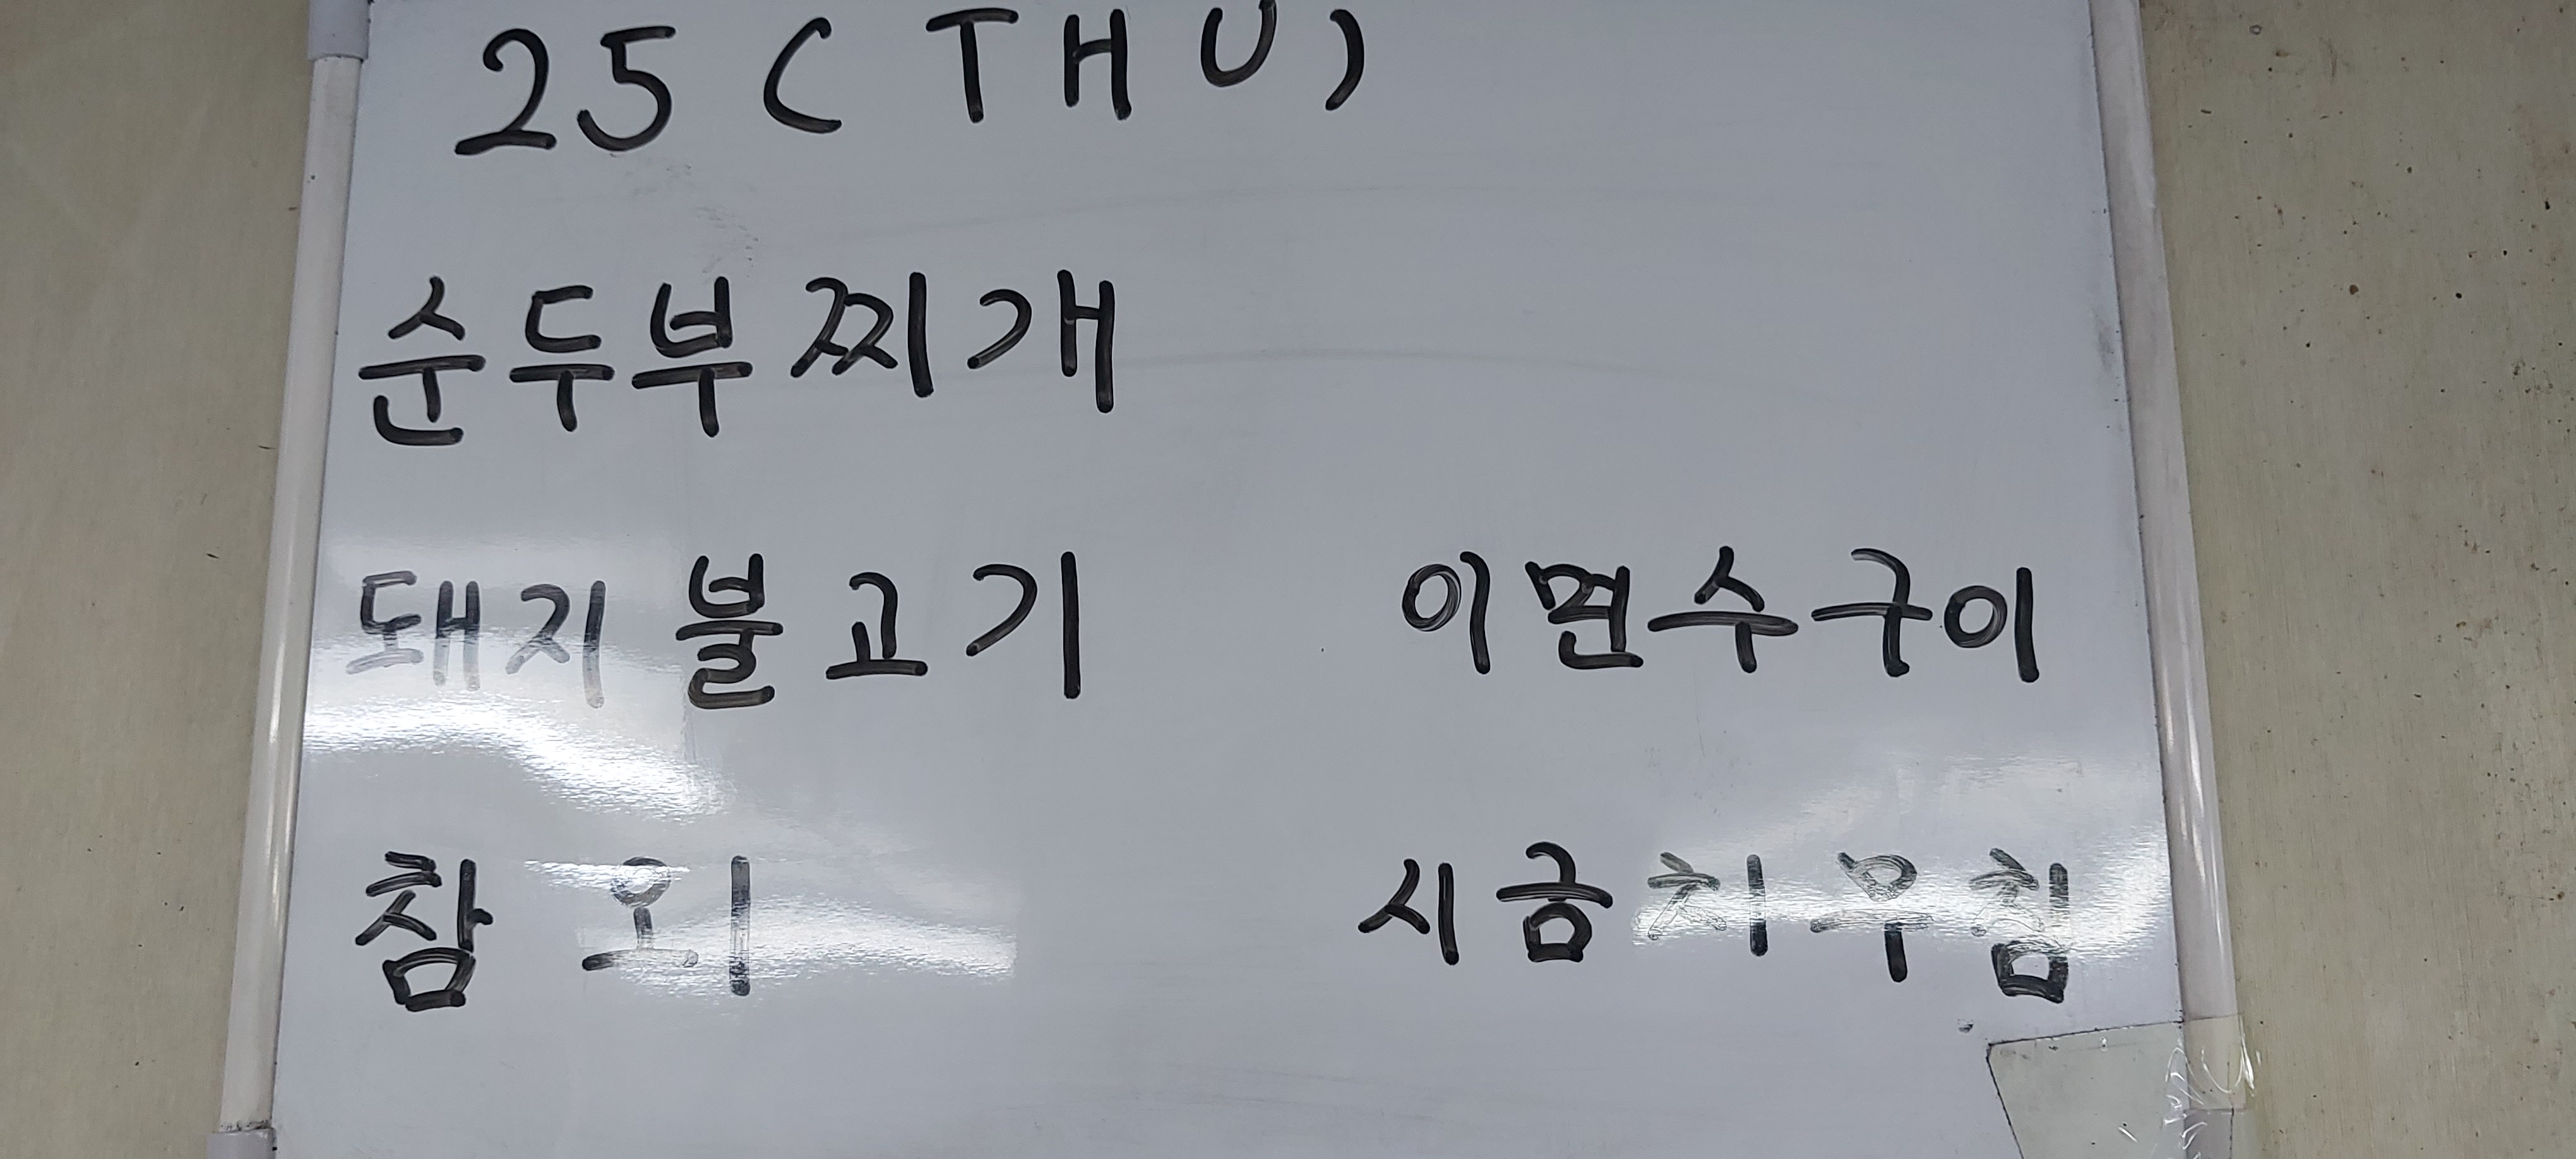 25 (THU)
순두부찌개
돼지불고기 이면수구이
참외 시금치무침